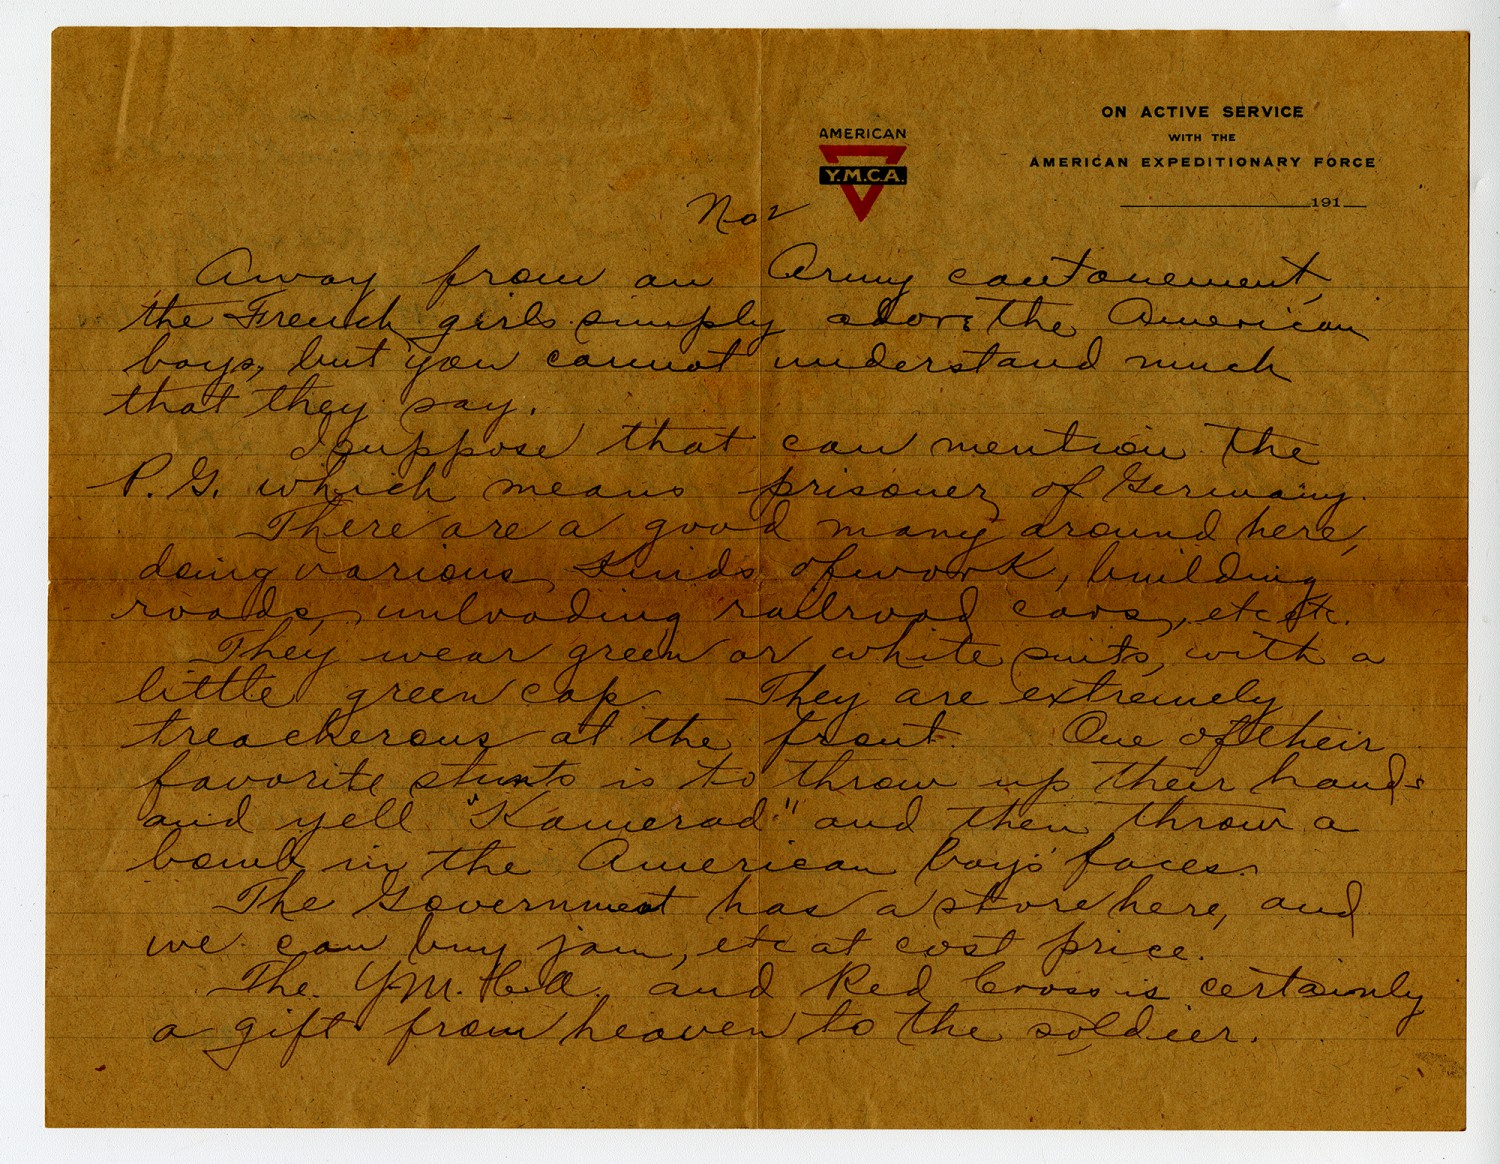 ON ACTIVE SERVICE
WITH THE
AMERICAN EXPEDITIONARY FORCE
AMERICAN
Y.M.C.A.
191
No 2
Away from an Army cantonement,
the French girls simply adore the American
boys, but you cannot understand much
that they say.
I suppose that can mention the
P. G. which means prisoner of Germany.
There are a good many around here,
doing various kinds of work, building
roads, unloading railroad cars, etc etc.
They wear green or white suits, with a
little green cap. They are extremely
treacherous at the front. One of their
favorite stunts is to throw up their hands
and yell "Kamerad." and then throw a
bomb in the American boys' faces.
The Government has a store here, and
we can buy jam, etc at cost price.
The Y.M.C.A. and Red Cross is certainly
a gift from heaven to the soldier.